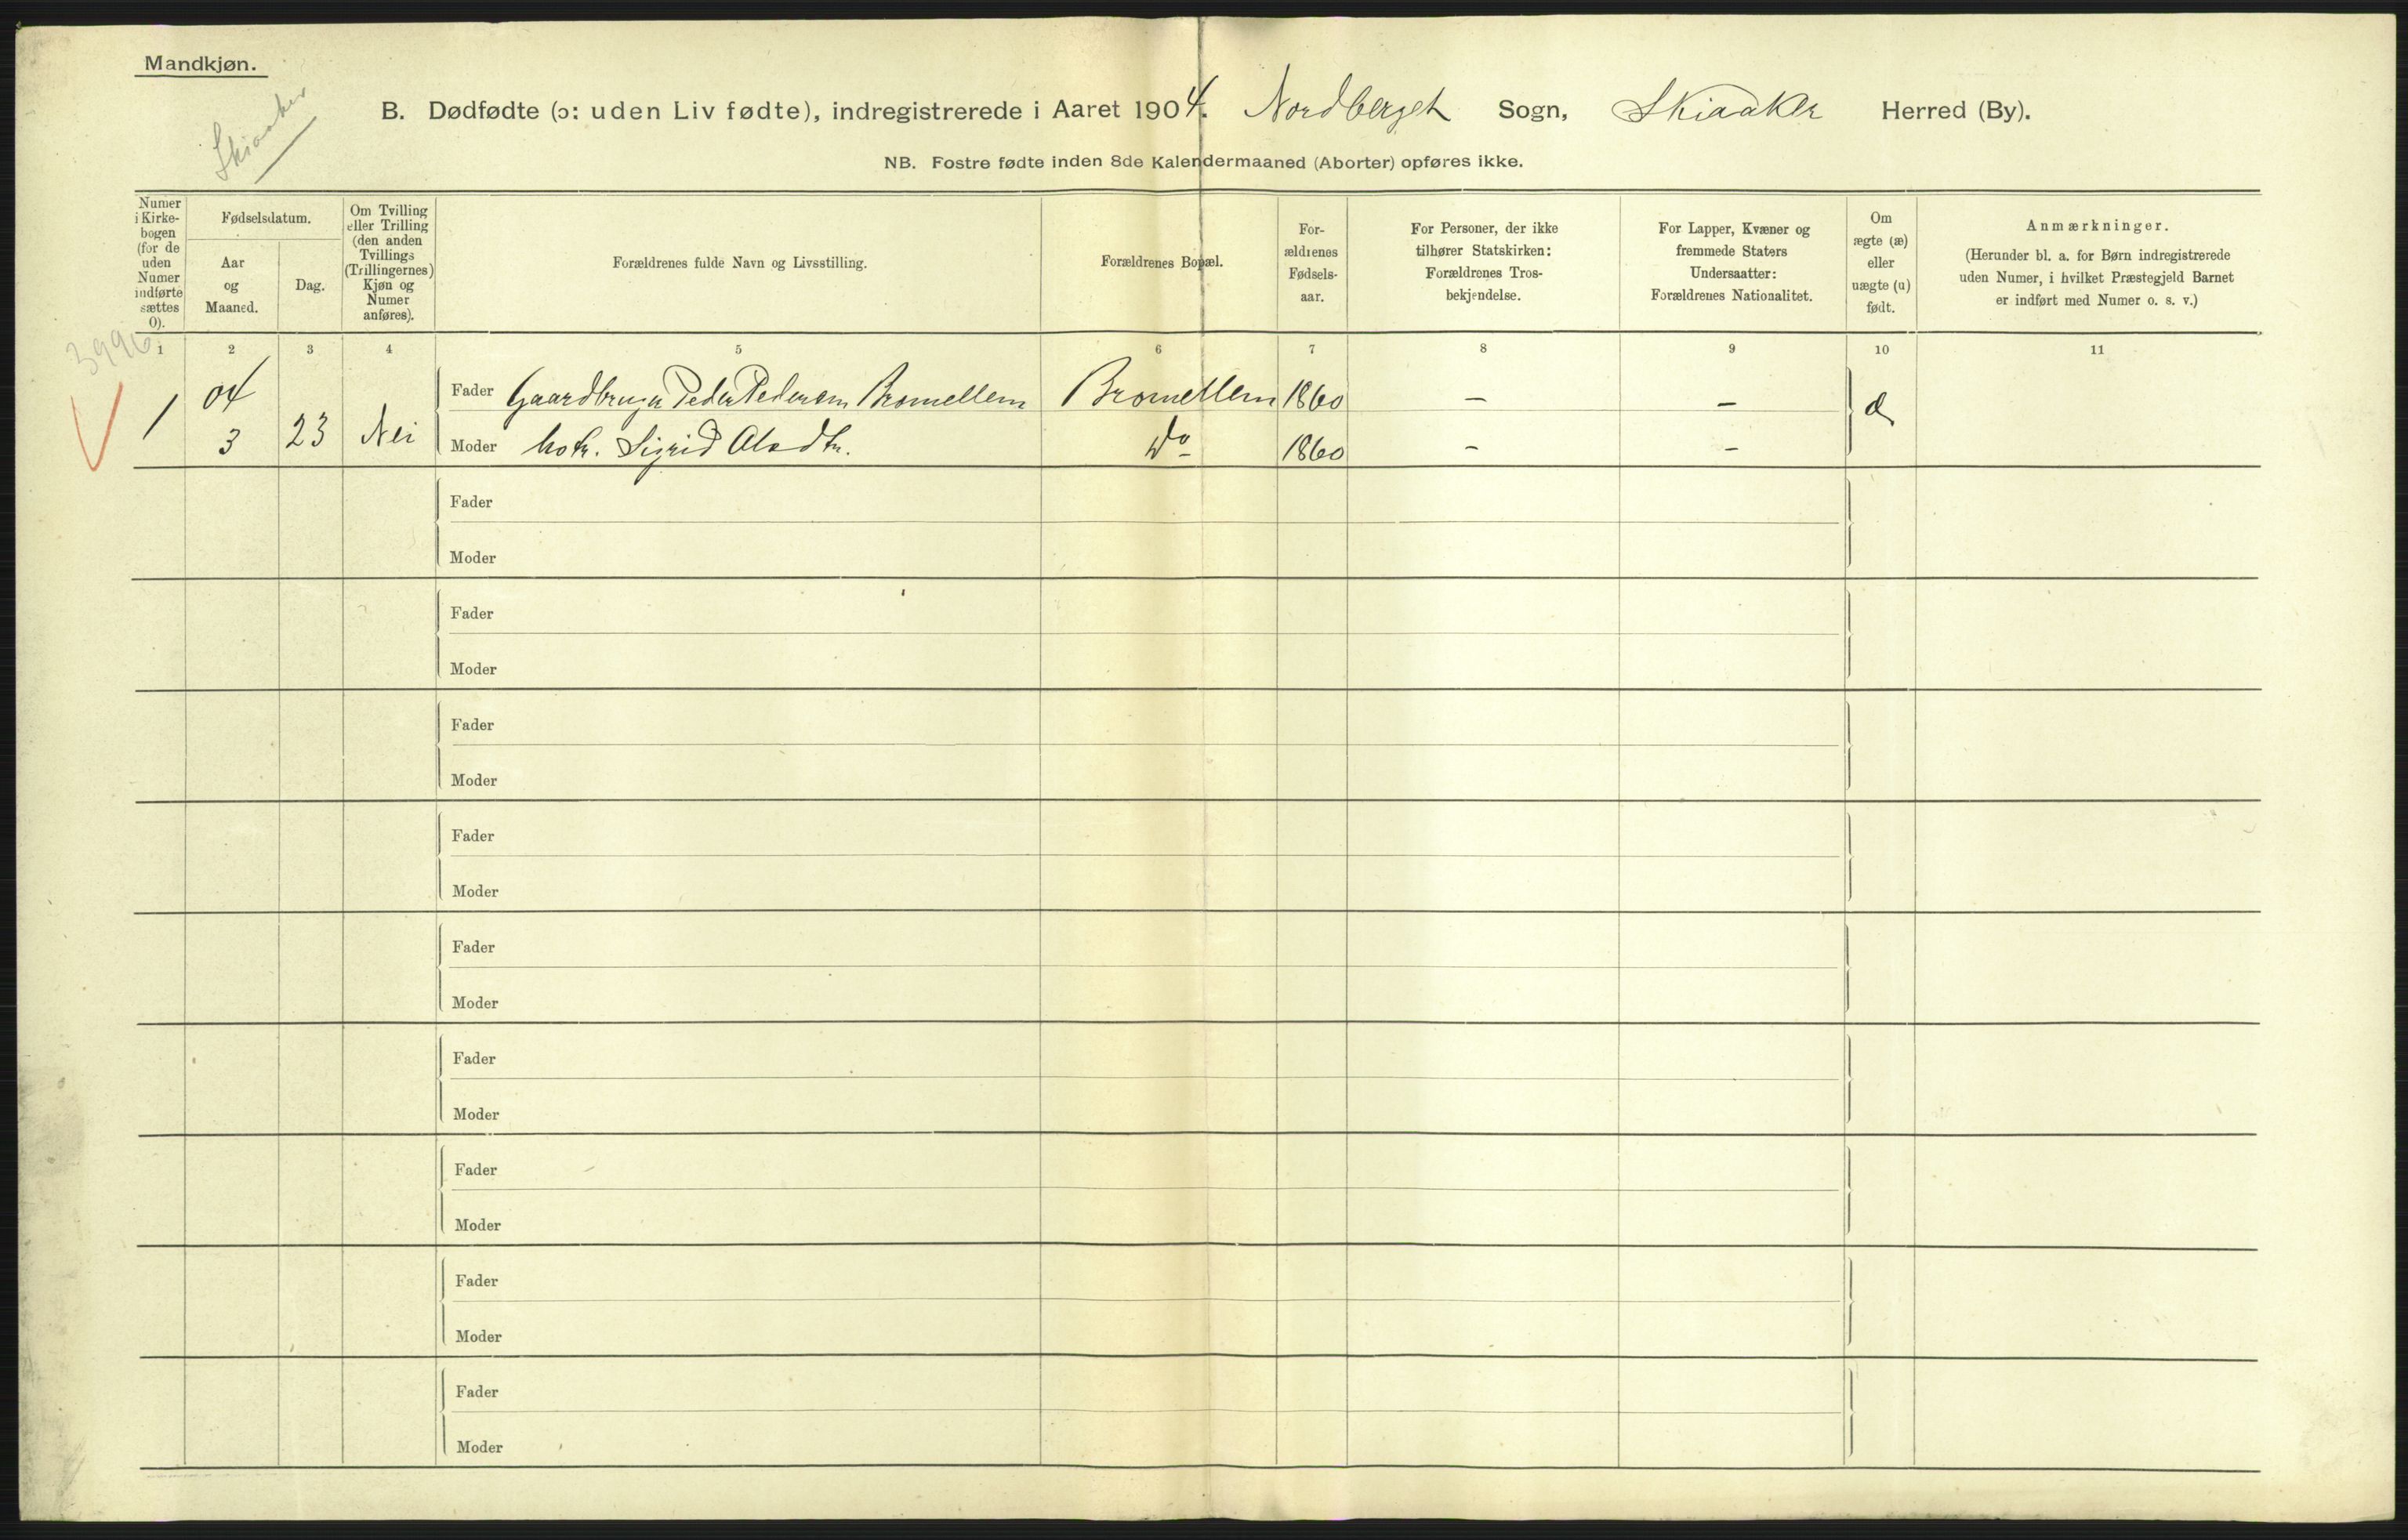 Mandkjøn.
Skiaaker
B. Dødfødte (ɔ: uden Liv fødte), indregistrerede i Aaret 1904. Nordberget Sogn, Skiaaker Herred (By).
NB. Fostre fødte inden 8de Kalendermaaned (Aborter) opføres ikke.
Numer
i Kirke-
bogen
(for de
uden
Numer
indførte
sættes
0).
Fødselsdatum.
Aar
og
Maaned.
Dag.
Om Tvilling
eller Trilling
(den anden
Tvillings
(Trillingernes)
Kjøn og
Numer
anføres).
Forældrenes fulde Navn og Livsstilling.
Forældrenes Bopæl.
For-
ældrenes
Fødsels-
aar.
For Personer, der ikke
tilhører Statskirken:
Forældrenes Tros-
bekjendelse.
For Lapper, Kvæner og
fremmede Staters
Undersaatter:
Forældrenes Nationalitet.
Om
ægte (æ)
eller
uægte (u)
født.
Anmærkninger.
(Herunder bl. a. for Børn indregistrerede
uden Numer, i hvilket Præstegjeld Barnet
er indført med Numer o. s. v.)
3996
1 2 3 4 5 6 7 8 9 10 11
1 04 Fader Gaardbruger Peder Pedersen Bromellem Bromellem 1860 – – æ
3 23 Nei Moder Sigrid Do 1860 – –
Fader
Moder
Fader
Moder
Fader
Moder
Fader
Moder
Fader
Moder
Fader
Moder
Fader
Moder
Fader
Moder
Fader
Moder